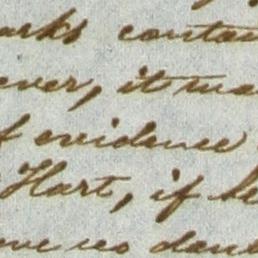 arks contai
ever, it ma
f evidence
Hart, if he
ave no